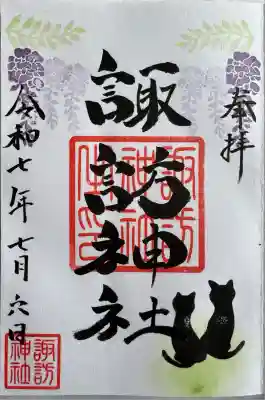 奉拝
諏訪神社
諏訪神社
令和七年七月六日
諏訪神社